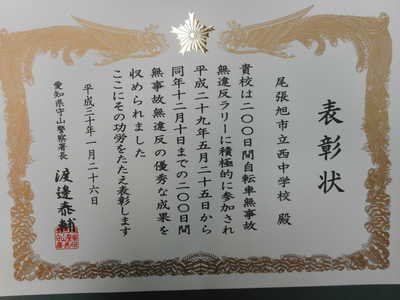 表彰状
尾張旭市立西中学校 殿
貴校は二〇〇日間自転車無事故
無違反ラリーに積極的に参加され
平成二十九年五月二十五日から
同年十二月十日までの二〇〇日間
無事故無違反の優秀な成果を
収められました
ここにその功労をたたえ表彰します
平成三十年一月二十六日
愛知県守山警察署長 渡邊泰輔